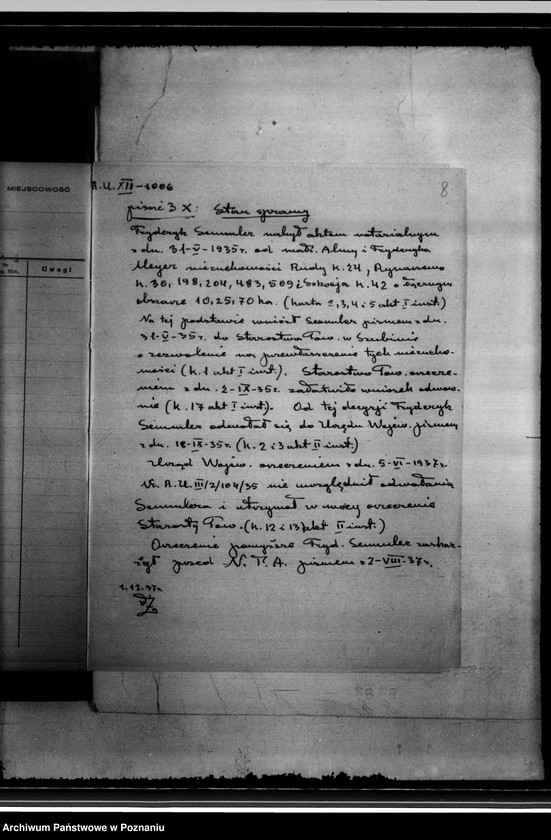 MIEJSCOWOŚĆ
Uwagi
R.U. XII-1006
8
pisać 3 X: Stan sprawy
Fryderyk Semmler nabył aktem notarialnym
z dn. 31-V-1935 r. od małż. Almy i Fryderyka
Meyer nieruchomości Rudy k.24, Rynarzewo
k. 30, 198, 204, 483, 509 i Sokoeja k. 42 o łącznym
obszarze 10,25,70 ha. (karta 2,3,4 i 5 akt I inst.)
Na tej podstawie wniósł Semmler pismem z dn.
31-V-35 r. do Starostwa Pow. w Szubinie
o zezwolenie na przewłaszczenie tych nierucho-
mości (k. 1 akt I inst.). Starostwo Pow. orzecze-
niem z dn. 2-IX-35 r. załatwiło wniosek odmow-
nie (k. 17 akt I inst.). Od tej decyzji Fryderyk
Semmler odwołał się do Urzędu Wojew. pismem
z dn. 18-IX-35 r. (k. 2 i 3 akt II inst.)
Urząd Wojew. orzeczeniem z dn. 5-VI-1937 r.
Nr. R.U. III/2/104/35 nie uwzględnił odwołania
Semmlera i utrzymał w mocy orzeczenie
Starosty Pow. (k. 12 i 13 akt II inst.)
Orzeczenie powyższe Fryd. Semmler zaskar-
żył przed N. T. A. pismem z 2-VIII-37 r.
1.12.37 r.
Archiwum Państwowe w Poznaniu